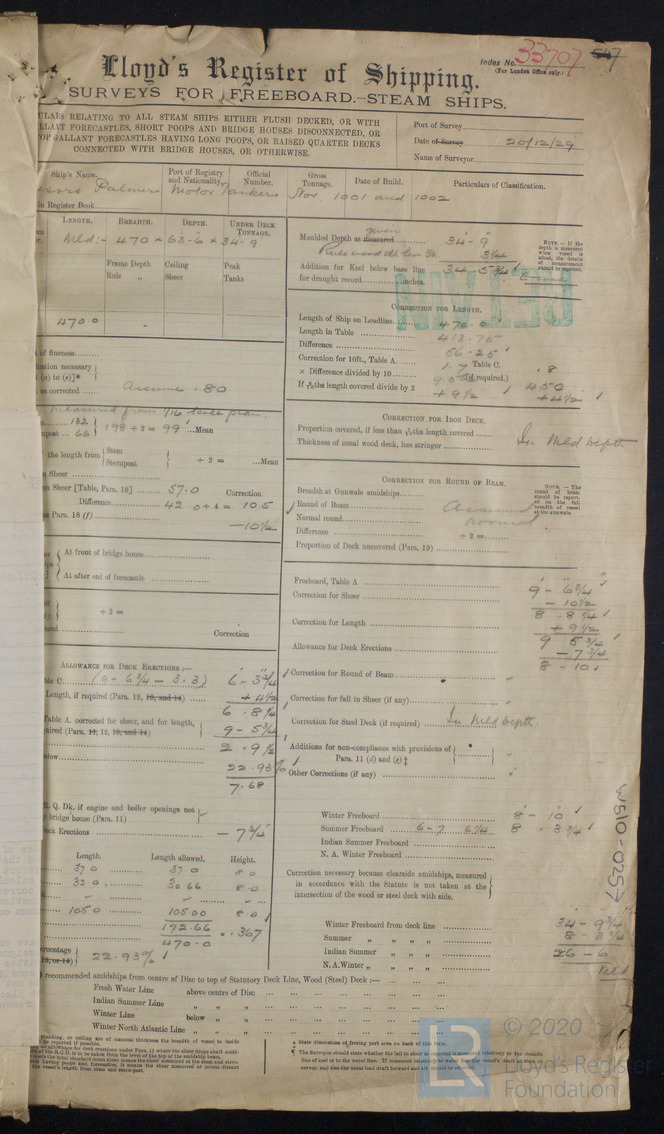 Index No. 33707 547
(For London Office only.)
Lloyd's Register of Shipping.
SURVEYS FOR FREEBOARD.—STEAM SHIPS.
ULARS RELATING TO ALL STEAM SHIPS EITHER FLUSH DECKED, OR WITH
LLANT FORECASTLES, SHORT POOPS AND BRIDGE HOUSES DISCONNECTED, OR
TOP GALLANT FORECASTLES HAVING LONG POOPS, OR RAISED QUARTER DECKS
CONNECTED WITH BRIDGE HOUSES, OR OTHERWISE.
Port of Survey
Date of Survey 20/12/29
Name of Surveyor
Ship's Name.
Port of Registry and Nationality.
Official Number.
Gross Tonnage.
Date of Build.
Particulars of Classification.
Palmers Motor Tankers Nos. 1001 and 1002
in Register Book
LENGTH. BREADTH. DEPTH. UNDER DECK TONNAGE.
Mld:- 470 × 63-6 × 34-9
Frame Depth Rule
Ceiling Sheer
Peak Tanks
470.0
of fineness
ication necessary
(a) to (e)]*
as corrected Assume .80
measured from 1/16 scale plan.
132
npost 66 198 ÷ 2 = 99 Mean
the length from Stem Sternpost ÷ 2 = ...Mean
n Sheer
an Sheer [Table, Para. 18] 57.0 Correction
Difference 42.0 ÷ 4 = 10.5
Para. 18 (f) —10½
At front of bridge house
At after end of forecastle
÷ 2 =
Correction
ALLOWANCE FOR DECK ERECTIONS :—
ble C (9-6¾ - 3.3) 6-3¾
Length, if required (Para. 12, 13, and 14) +4½
6.8¼
Table A. corrected for sheer, and for length,
uired (Para. 11, 12, 13, and 14) 9-5¾
2.9½
below 22.93%
7.68
R. Q. Dk. if engine and boiler openings not
y bridge house (Para. 11)
eck Erections —7¾
Length. Length allowed. Height.
37.0 37.0 8.0
32.0 30.66 8.0
105.0 105.00 8.0
172.66
470.0 = .367
ercentage
13, or 14) 22.93%
Moulded Depth as measured given 34-9
3¼
Addition for Keel below base line 34-5¾
for draught record inches.
NOTE.—If the depth is measured when vessel is afloat, the details of measurement should be reported.
RETAIN
CORRECTION FOR LENGTH.
Length of Ship on Loadline 470.0
Length in Table 413.75
Difference 56.25
Correction for 10ft., Table A. 1.7 Table C. .8
× Difference divided by 10 (if required.)
If ths length covered divide by 2 +9½ 4.50 +4½
CORRECTION FOR IRON DECK.
Proportion covered, if less than ths length covered
Thickness of usual wood deck, less stringer In Mld Depth
CORRECTION FOR ROUND OF BEAM.
Breadth at Gunwale amidships
Round of Beam Assumed
Normal round normal
Difference ÷ 2 =
Proportion of Deck uncovered (Para. 19)
NOTE.—The round of beam should be reported at on the full breadth of vessel at the gunwale.
Freeboard, Table A 9-6¾
Correction for Sheer —10½
8-8¼
Correction for Length +9½
9-5¾
Allowance for Deck Erections —7¾
8-10
Correction for Round of Beam
Correction for fall in Sheer (if any)
Correction for Steel Deck (if required) In Mld Depth.
Additions for non-compliance with provisions of
Para. 11 (d) and (e)‡
Other Corrections (if any)
Winter Freeboard 8-10
Summer Freeboard 6-7 6¼ 8.3¾
Indian Summer Freeboard
N. A. Winter Freeboard
Correction necessary because clearside amidships, measured
in accordance with the Statute is not taken at the
intersection of the wood or steel deck with side.
Winter Freeboard from deck line 34-9¾
Summer „ „ „ „
Indian Summer „ „ „ 26-6
N. A. Winter „ „ „ „ Mld
W510-0257
recommended amidships from centre of Disc to top of Statutory Deck Line, Wood (Steel) Deck :—
Fresh Water Line above centre of Disc
Indian Summer Line „ „ „
Winter Line below „ „
Winter North Atlantic Line „ „ „
‡ State dimensions of freeing port area on back of this form.
¶ The Surveyor should state whether the fall in sheer as reported is measured relatively to the straight
© 2020
LR
Lloyd's Register
Foundation